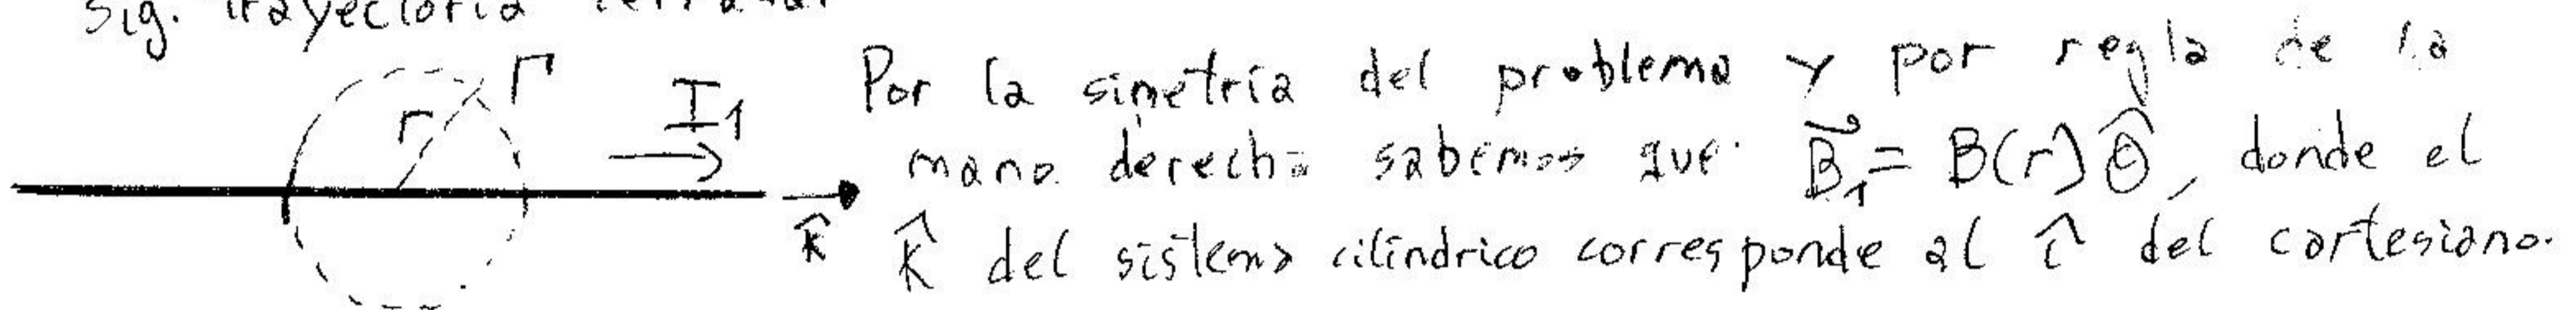 sig. trayectoria cerrada:
Γ
r
I₁
k̂
Por la simetría del problema y por regla de la
mano derecha sabemos que: B⃗₁ = B(r) θ̂, donde el
k̂ del sistema cilíndrico corresponde al î del cartesiano.